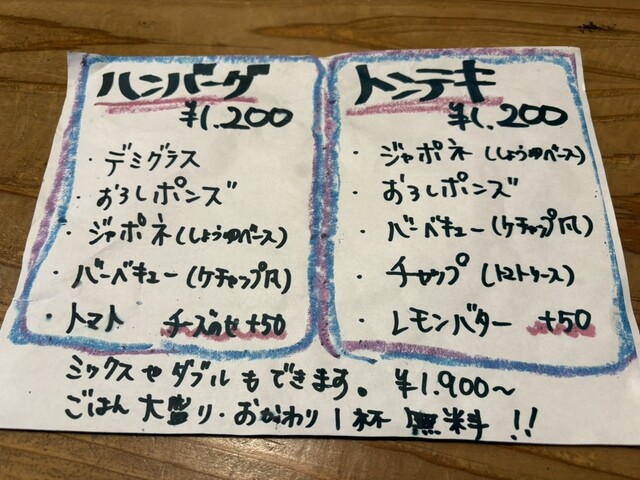 ハンバーグ
¥1,200
・デミグラス
・おろしポンズ
・ジャポネ(しょうゆベース)
・バーベキュー(ケチャップ風)
・トマト チーズのせ+50
トンテキ
¥1,200
・ジャポネ(しょうゆベース)
・おろしポンズ
・バーベキュー(ケチャップ風)
・チャップ(トマトソース)
・レモンバター +50
ミックスやダブルもできます。¥1,900〜
ごはん大盛り・おかわり1杯無料!!